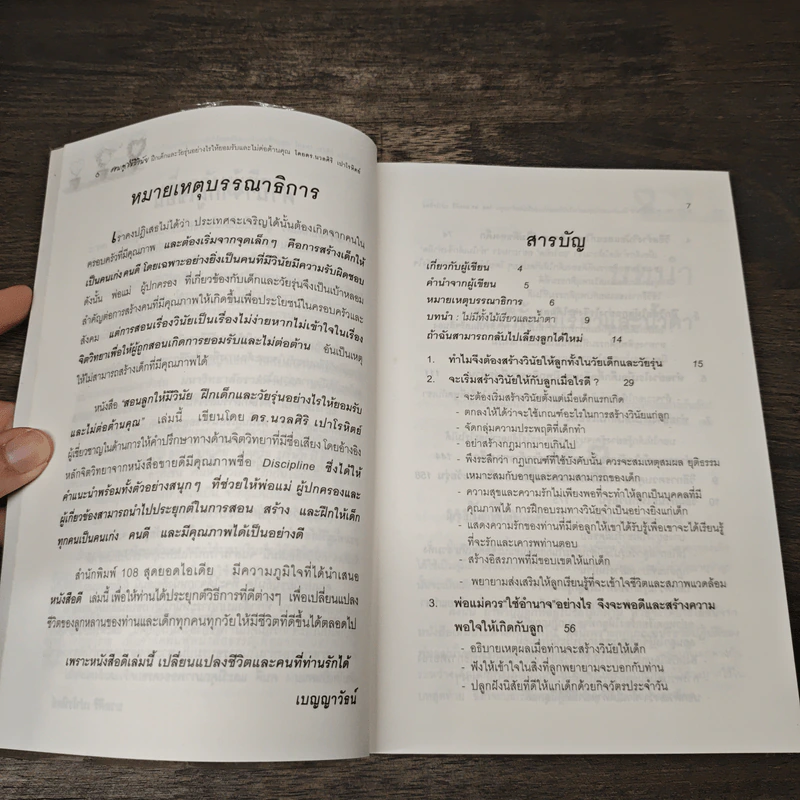 6 สอนลูกให้มีวินัย ฝึกเด็กและวัยรุ่นอย่างไรให้ยอมรับและไม่ต่อต้านคุณ โดยดร.นวลศิริ เปาโรหิตย์
หมายเหตุบรรณาธิการ
เราคงปฏิเสธไม่ได้ว่า ประเทศจะเจริญได้นั้นต้องเกิดจากคนใน
ครอบครัวที่มีคุณภาพ และต้องเริ่มจากจุดเล็กๆ คือการสร้างเด็กให้
เป็นคนเก่งคนดี โดยเฉพาะอย่างยิ่งเป็นคนที่มีวินัยมีความรับผิดชอบ
ดังนั้น พ่อแม่ ผู้ปกครอง ที่เกี่ยวข้องกับเด็กและวัยรุ่นจึงเป็นเป้าหลอม
สำคัญต่อการสร้างคนที่มีคุณภาพให้เกิดขึ้นเพื่อประโยชน์ในครอบครัวและ
สังคม แต่การสอนเรื่องวินัยเป็นเรื่องไม่ง่ายหากไม่เข้าใจในเรื่อง
จิตวิทยาเพื่อให้ผู้ถูกสอนเกิดการยอมรับและไม่ต่อต้าน อันเป็นเหตุ
ให้ไม่สามารถสร้างเด็กที่มีคุณภาพได้
หนังสือ "สอนลูกให้มีวินัย ฝึกเด็กและวัยรุ่นอย่างไรให้ยอมรับ
และไม่ต่อต้านคุณ" เล่มนี้ เขียนโดย ดร.นวลศิริ เปาโรหิตย์
ผู้เชี่ยวชาญในด้านการให้คำปรึกษาทางด้านจิตวิทยาที่มีชื่อเสียง โดยอ้างอิง
หลักจิตวิทยาจากหนังสือขายดีมีคุณภาพชื่อ Discipline ซึ่งได้ให้
คำแนะนำพร้อมทั้งตัวอย่างสนุกๆ ที่ช่วยให้พ่อแม่ ผู้ปกครองและ
ผู้เกี่ยวข้องสามารถนำไปประยุกต์ในการสอน สร้าง และฝึกให้เด็ก
ทุกคนเป็นคนเก่ง คนดี และมีคุณภาพได้เป็นอย่างดี
สำนักพิมพ์ 108 สุดยอดไอเดีย มีความภูมิใจที่ได้นำเสนอ
หนังสือดี เล่มนี้ เพื่อให้ท่านได้ประยุกต์วิธีการที่ดีต่างๆ เพื่อเปลี่ยนแปลง
ชีวิตของลูกหลานของท่านและเด็กทุกคนทุกวัยให้มีชีวิตที่ดีขึ้นได้ตลอดไป
เพราะหนังสือดีเล่มนี้ เปลี่ยนแปลงชีวิตและคนที่ท่านรักได้
เบญญาวัธน์
7
สารบัญ
เกี่ยวกับผู้เขียน 4
คำนำจากผู้เขียน 5
หมายเหตุบรรณาธิการ 6
บทนำ : ไม่มีทั้งไม้เรียวและน้ำตา 9
ถ้าฉันสามารถกลับไปเลี้ยงลูกได้ใหม่ 14
1. ทำไมจึงต้องสร้างวินัยให้ลูกทั้งในวัยเด็กและวัยรุ่น 15
2. จะเริ่มสร้างวินัยให้กับลูกเมื่อไรดี ? 29
- จะต้องเริ่มสร้างวินัยตั้งแต่เมื่อเด็กแรกเกิด
- ตกลงให้ได้ว่าจะใช้เกณฑ์อะไรในการสร้างวินัยแก่ลูก
- จัดกลุ่มความประพฤติที่เด็กทำ
- อย่าสร้างกฎมากมายเกินไป
- พึงระลึกว่า กฎเกณฑ์ที่ใช้บังคับนั้น ควรจะสมเหตุสมผล ยุติธรรม
เหมาะสมกับอายุและความสามารถของเด็ก
- ความสุขและความรักไม่เพียงพอที่จะทำให้ลูกเป็นบุคคลที่มี
คุณภาพได้ การฝึกอบรมทางวินัยจำเป็นอย่างยิ่งแก่เด็ก
- แสดงความรักของท่านที่มีต่อลูกให้เขาได้รับรู้เพื่อเขาจะได้เรียนรู้
ที่จะรักและเคารพท่านตอบ
- สร้างอิสรภาพที่มีขอบเขตให้แก่เด็ก
- พยายามส่งเสริมให้ลูกเรียนรู้ที่จะเข้าใจชีวิตและสภาพแวดล้อม
3. พ่อแม่ควร"ใช้อำนาจ"อย่างไร จึงจะพอดีและสร้างความ
พอใจให้เกิดกับลูก 56
- อธิบายเหตุผลเมื่อท่านจะสร้างวินัยให้เด็ก
- ฟังให้เข้าใจในสิ่งที่ลูกพยายามจะบอกกับท่าน
- ปลูกฝังนิสัยที่ดีให้แก่เด็กด้วยกิจวัตรประจำวัน